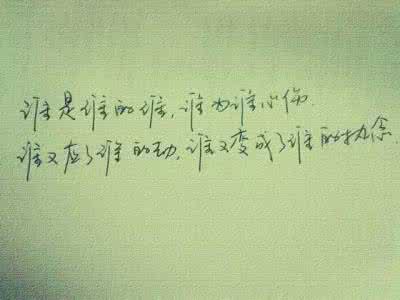 谁是谁的谁,谁为谁心伤.
谁又应了谁的劫,谁又变成了谁的执念.